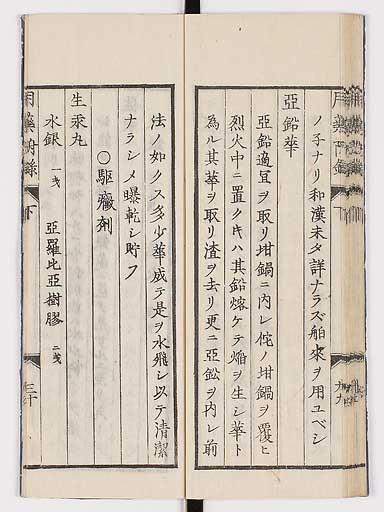 ノ子ナリ和漢未タ詳ナラズ舶來ヲ用ユベシ
亞鉛華
亞鉛適宜ヲ取リ坩鍋ニ内レ佗ノ坩鍋ヲ覆ヒ
烈火中ニ置クキハ其鉛熔ケテ焔ヲ生シ華ト
爲ル其華ヲ取リ渣ヲ去リ更ニ亞鉛ヲ内レ前
法ノ如クス多少華成テ是ヲ水飛シ以テ清潔
ナラシメ曝乾シ貯フ
○驅黴劑
生汞丸
水銀 一戔 亞羅比亞樹膠 二戔
下
三十